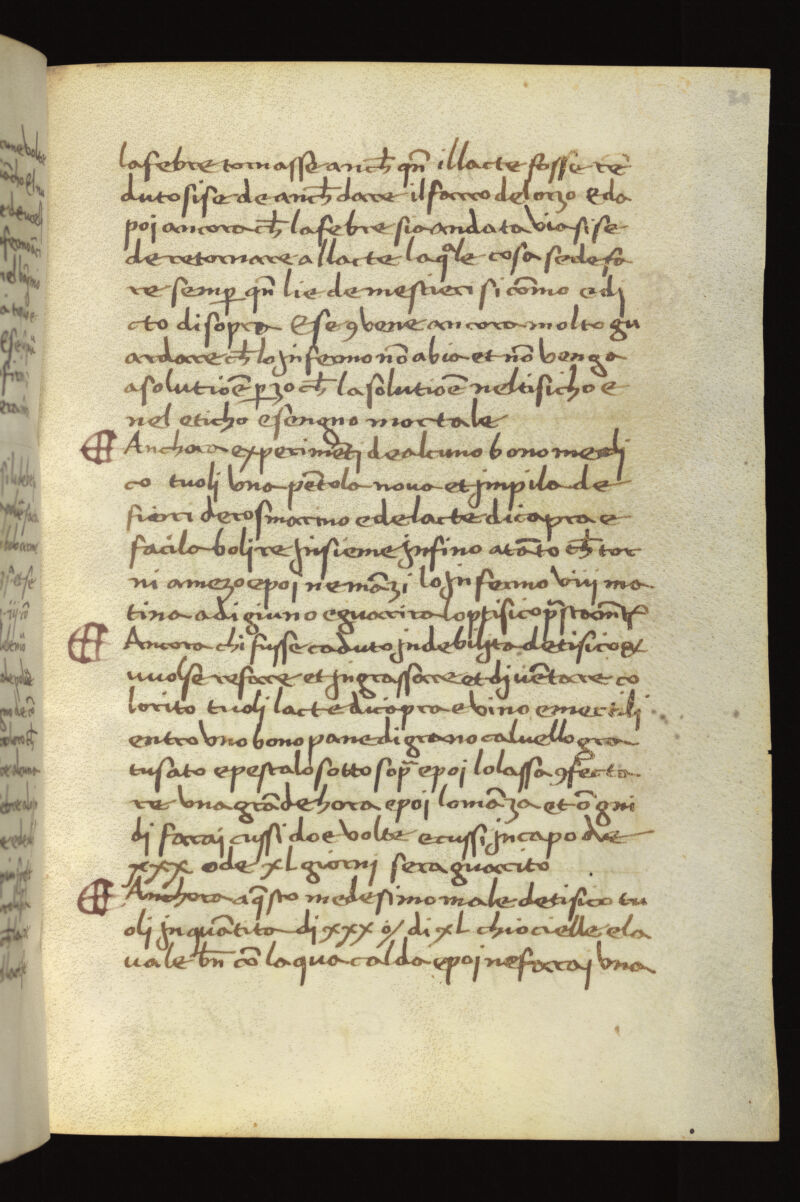 la febre tornasse anch̄ qn̄ il lacte fosse rē
duto si se de anch̄ dare il farro de lorzo & da
poi ancora ch̄ la febre sia andata via si se
de retornare al lacte la qle cosa se de fa
re semp̱ qn̄ li e de mestieri si cōmo e di
cto di sopra E se ꝯvene ancora molto gu
ardare ch̄ lo jnfermo nō abia et nō venga
a solutiōe ꝑ zo ch̄ la solutiōe nel tisicho e
nel eticho e sengno mortale
Anchora experimēti de alcuno bono medi
co tuoli una pētola nova et jmpila de
fiori de rosmarino e de lacte di capra e
facila bolire jnsieme jnfino a tāto ch̄ tor
ni a mezo e poi ne māzi lo jnfermo viij ma
tina a digiuno e guarira lo ptisico
Ancora chi fusse caduto jn debilita de tisico &
vuolse refare et jngrassare et diventare co
lorito tuoli lacte di capra e vino e mectili
entro uno bono pane di grano calvello gra
tusato e pestalo sotto sopra e poi lo lassa ꝯfecta
re una grāde hora e poi lo māza et ōgni
di farai cussi doe volte e cussi jn capo de
xxx o de xl giorni sera guarito
Anchora a q̄sto medesimo male de tisico tu
oli jn quātita di xxx o/ di xl chiocielle e la
vale bn̄ cō laqua calda e poi ne farai una